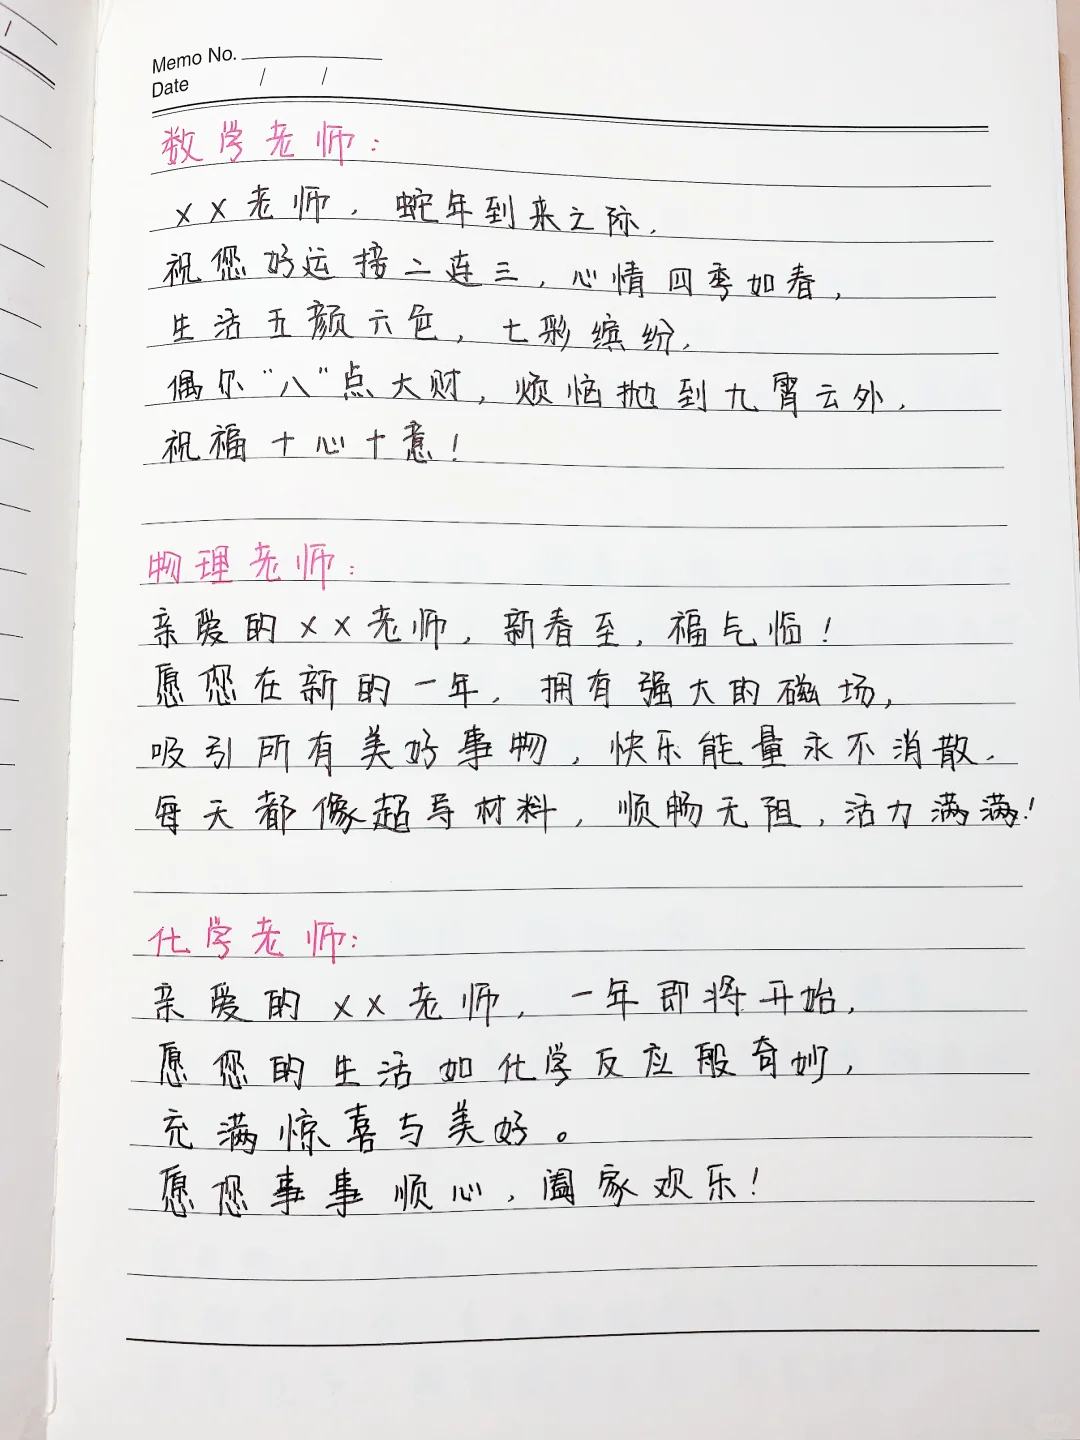 Memo No.
Date / /
数学老师：
××老师，蛇年到来之际，
祝您好运接二连三，心情四季如春，
生活五颜六色，七彩缤纷，
偶尔“八”点大财，烦恼抛到九霄云外，
祝福十心十意！
物理老师：
亲爱的××老师，新春至，福气临！
愿您在新的一年，拥有强大的磁场，
吸引所有美好事物，快乐能量永不消散，
每天都像超导材料，顺畅无阻，活力满满！
化学老师：
亲爱的××老师，一年即将开始，
愿您的生活如化学反应般奇妙，
充满惊喜与美好。
愿您事事顺心，阖家欢乐！